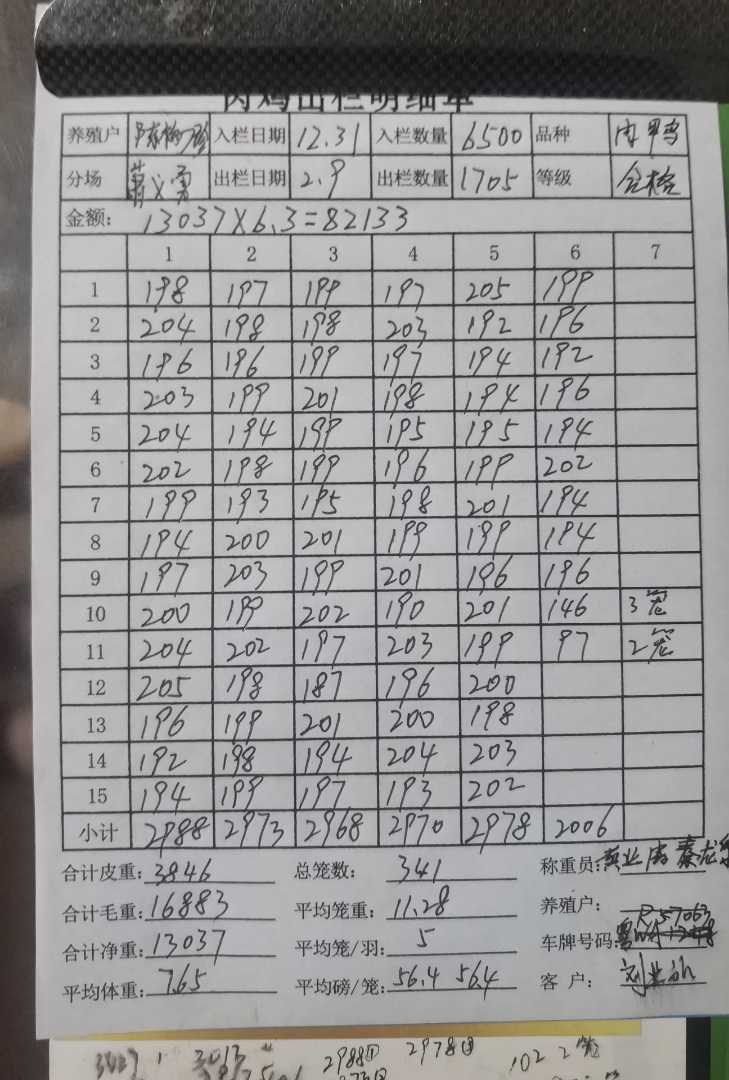 肉鸡出栏明细单
养殖户 入栏日期 12.31 入栏数量 6500 品种 肉鸭
分场 出栏日期 2.9 出栏数量 1705 等级 合格
金额: 13037X6.3=82133
1 2 3 4 5 6 7
1 198 197 199 197 205 199
2 204 198 198 203 192 196
3 196 196 199 197 194 192
4 203 199 201 198 194 196
5 204 194 199 195 195 194
6 202 198 199 196 199 202
7 199 193 195 198 201 194
8 194 200 201 199 199 194
9 197 203 199 201 196 196
10 200 199 202 190 201 146 3笼
11 204 202 197 203 199 97 2笼
12 205 198 187 196 200
13 196 199 201 200 198
14 192 198 194 204 203
15 194 199 197 193 202
小计 2988 2973 2968 2970 2978 2006
合计皮重: 3846 总笼数: 341 称重员:
合计毛重: 16883 平均笼重: 11.28 养殖户:
R57063
合计净重: 13037 平均笼/羽: 5 车牌号码:
平均体重: 7.65 平均磅/笼: 56.4 56.4 客 户:
3013 2988① 2978
102 2笼